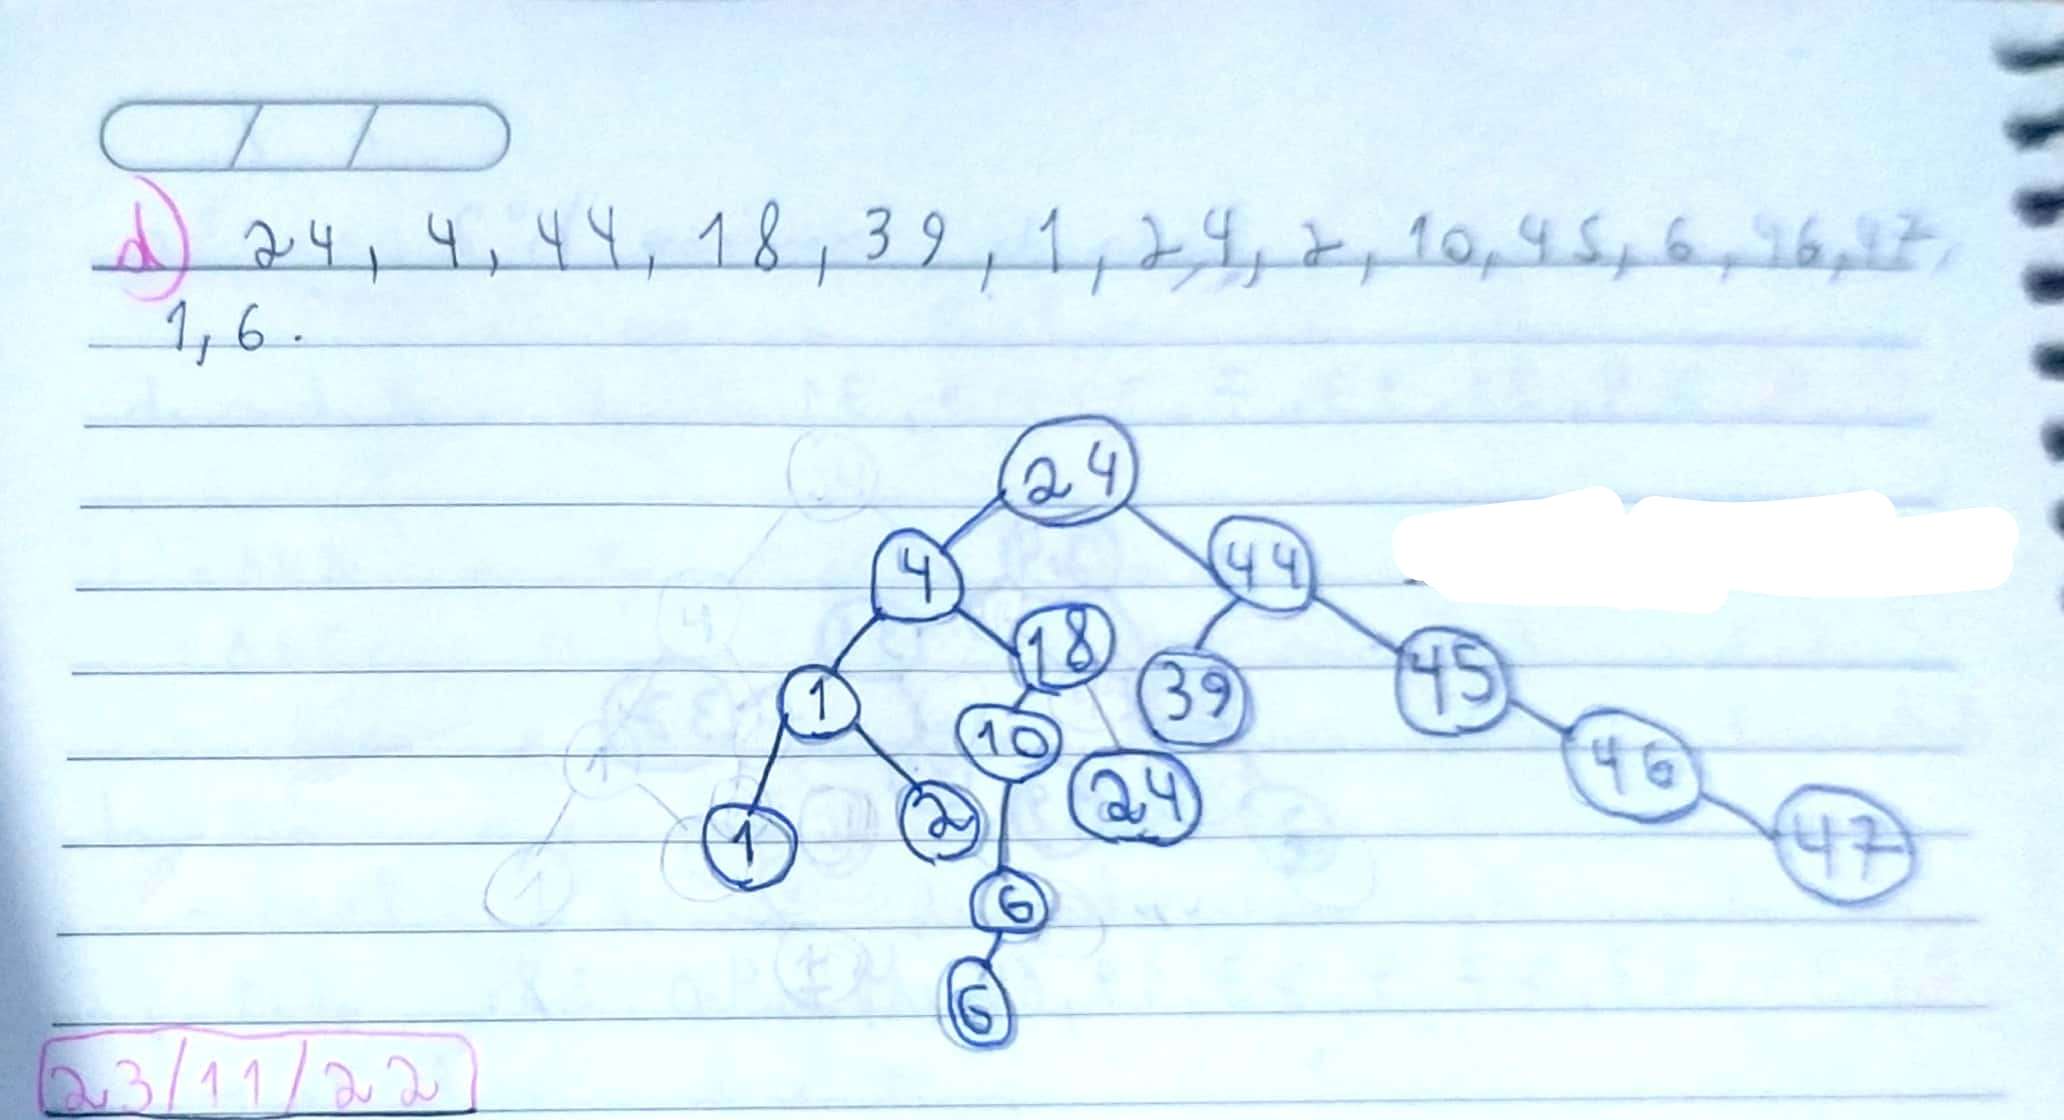 d) 24, 4, 44, 18, 39, 1, 24, 2, 10, 45, 6, 46, 47,
1, 6.
24
4 44
1 18 39 45
1 2 10 24 46
6 47
6
23/11/22